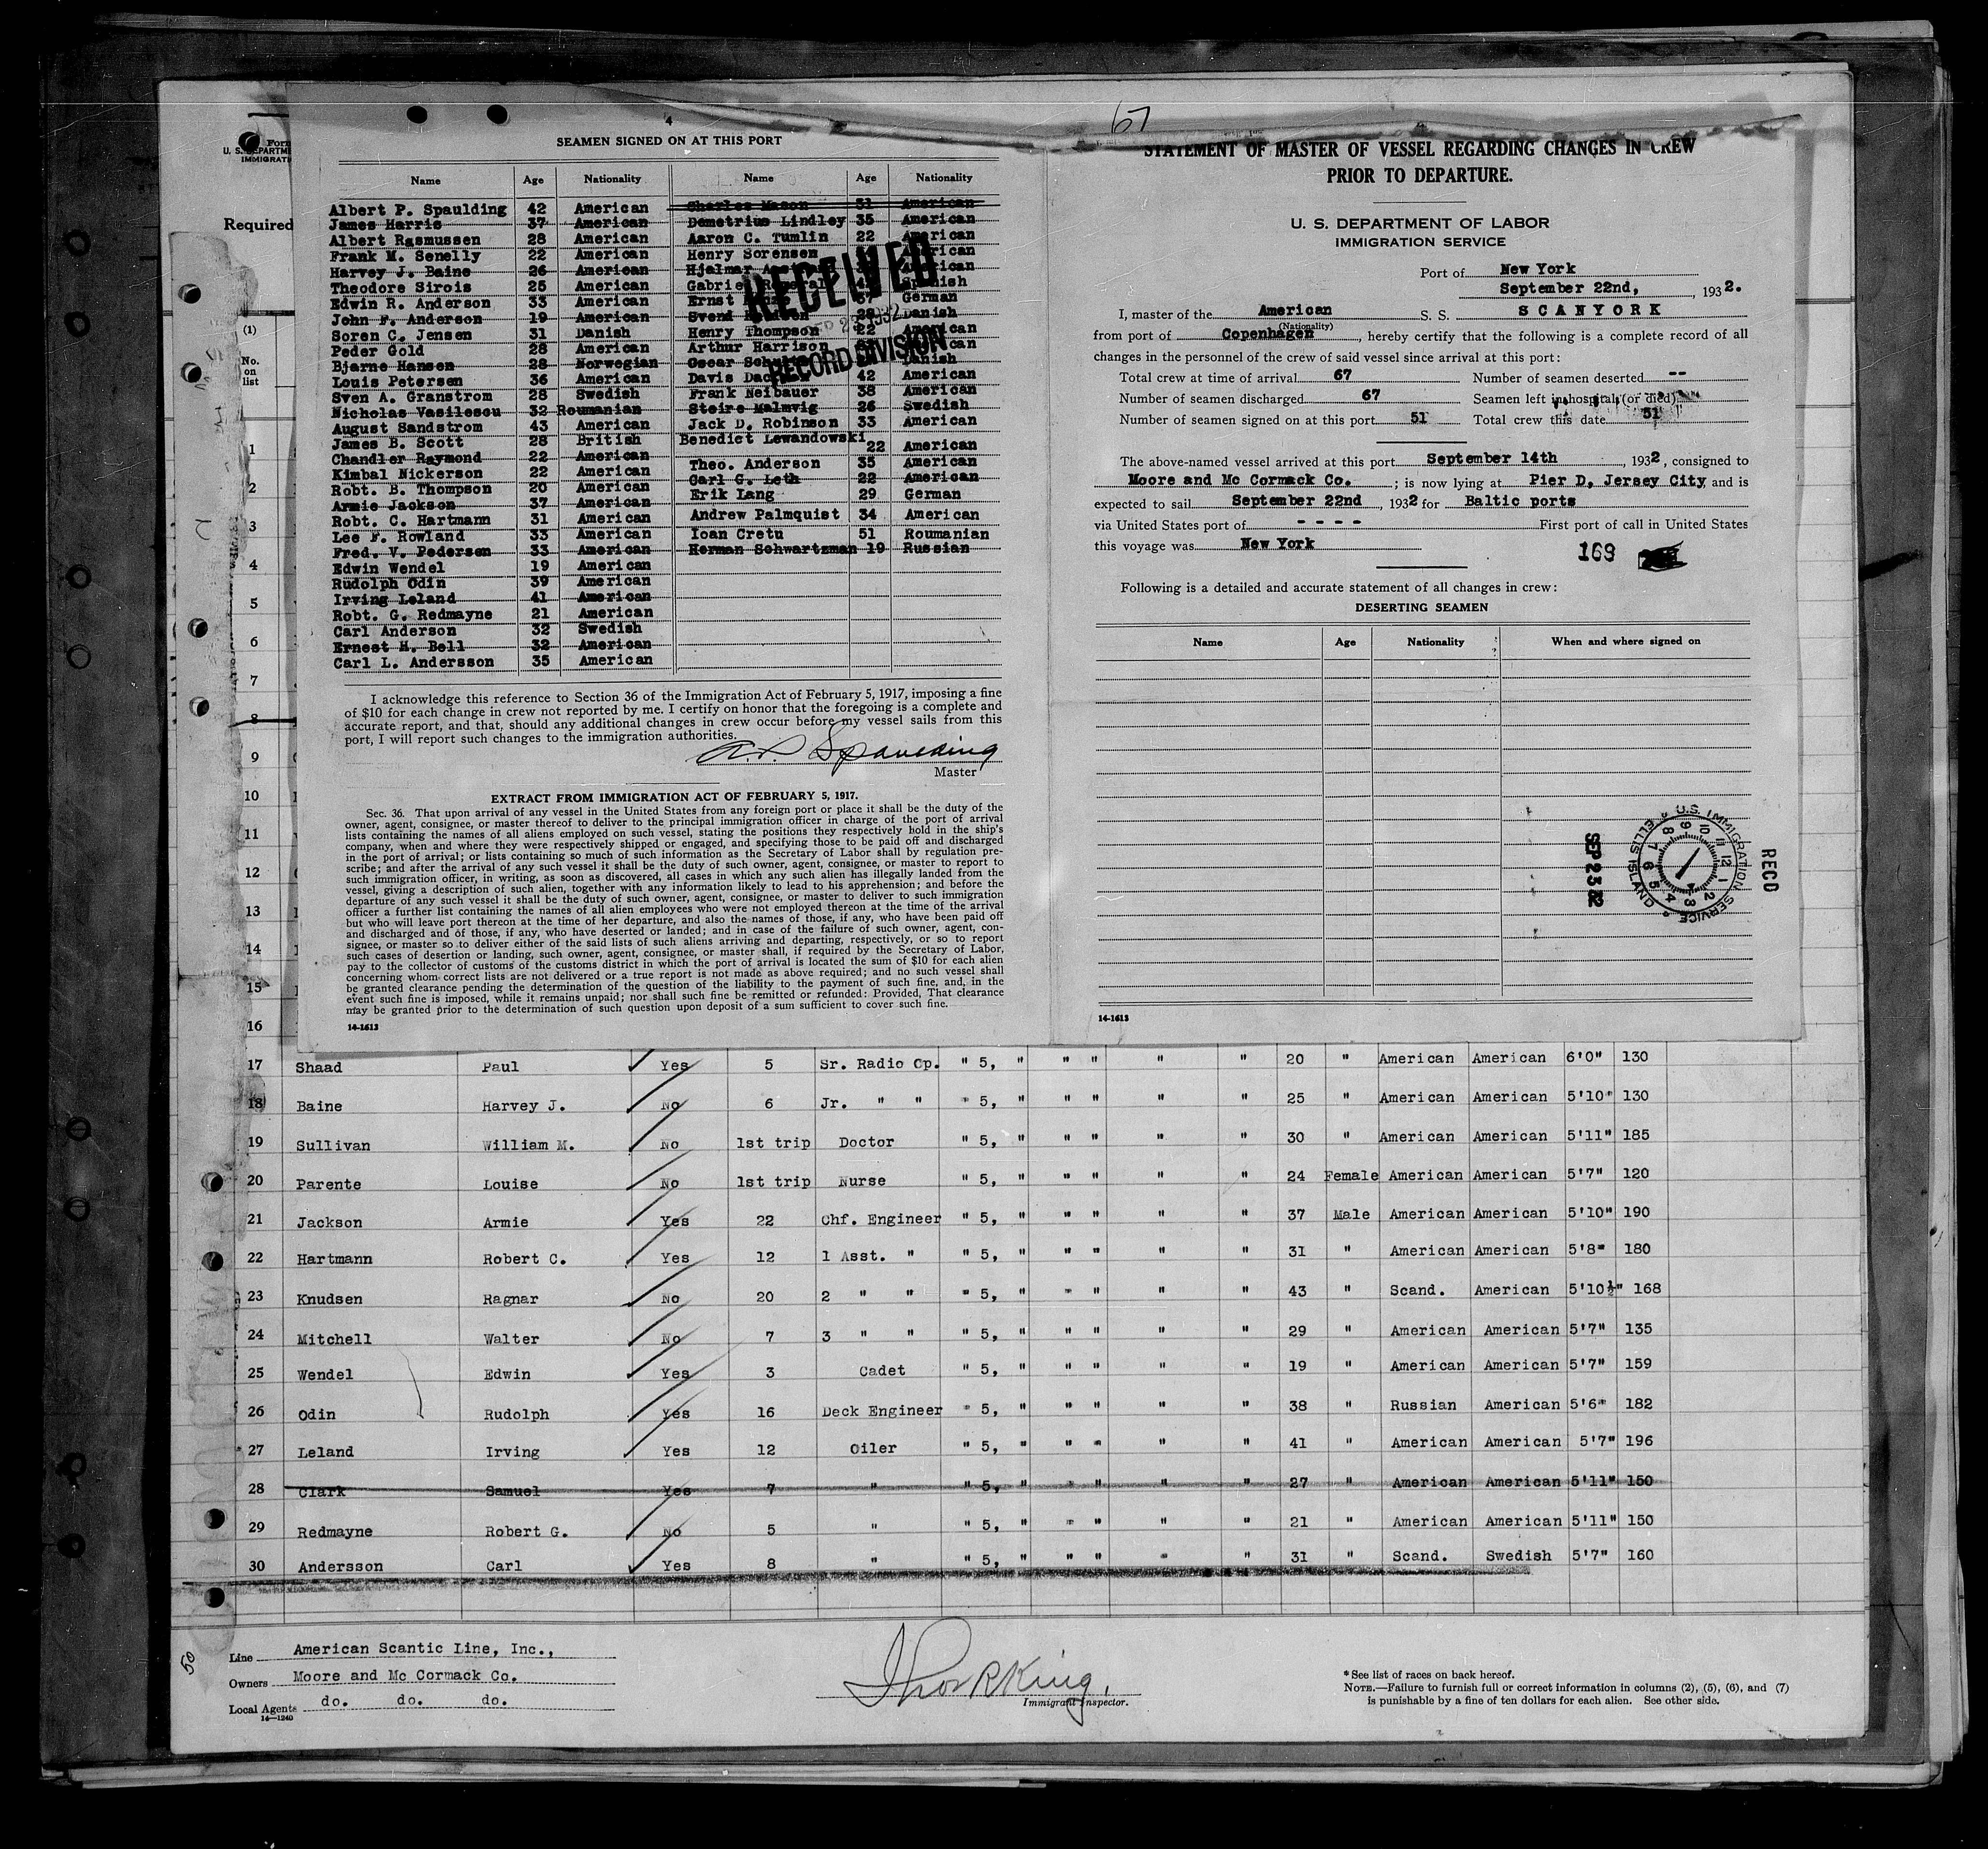 Form
U. S. DEPARTM
IMMIGRATI
Required
(1)
No.
on
list
4
SEAMEN SIGNED ON AT THIS PORT
Name Age Nationality Name Age Nationality
Albert P. Spaulding 42 American Charles Mason 31 American
James Harris 37 American Demetrius Lindley 35 American
Albert Rasmussen 28 American Aaron C. Tumlin 22 American
Frank M. Senelly 22 American Henry Sorensen American
Harvey J. Baine 26 American Hjalmar American
Theodore Sirois 25 American Gabriel Spanish
Edwin R. Anderson 33 American Ernst 37 German
John F. Anderson 19 American Svend 28 Danish
Soren C. Jensen 31 Danish Henry Thompson 22 American
Peder Gold 28 American Arthur Harrison American
Bjarne Hansen 28 Norwegian Oscar Danish
Louis Petersen 36 American Davis 42 American
Sven A. Granstrom 28 Swedish Frank Neibauer 38 American
Nicholas Vasilescu 32 Roumanian Steire Malmvig 26 Swedish
August Sandstrom 43 American Jack D. Robinson 33 American
James B. Scott 28 British Benedict Lewandowski 22 American
Chandler Raymond 22 American Theo. Anderson 35 American
Kimbal Nickerson 22 American Carl G. Leth 22 American
Robt. B. Thompson 20 American Erik Lang 29 German
Armie Jackson 37 American
Robt. C. Hartmann 31 American Andrew Palmquist 34 American
Lee F. Rowland 33 American Ioan Cretu 51 Roumanian
Fred. V. Pedersen 33 American Herman Schwartzman 19 Russian
Edwin Wendel 19 American
Rudolph Odin 39 American
Irving Leland 41 American
Robt. G. Redmayne 21 American
Carl Anderson 32 Swedish
Ernest H. Bell 32 American
Carl L. Andersson 35 American
RECEIVED
1932
RECORD DIVISION
I acknowledge this reference to Section 36 of the Immigration Act of February 5, 1917, imposing a fine
of $10 for each change in crew not reported by me. I certify on honor that the foregoing is a complete and
accurate report, and that, should any additional changes in crew occur before my vessel sails from this
port, I will report such changes to the immigration authorities.
A. P. Spaulding
Master
EXTRACT FROM IMMIGRATION ACT OF FEBRUARY 5, 1917.
Sec. 36. That upon arrival of any vessel in the United States from any foreign port or place it shall be the duty of the
owner, agent, consignee, or master thereof to deliver to the principal immigration officer in charge of the port of arrival
lists containing the names of all aliens employed on such vessel, stating the positions they respectively hold in the ship's
company, when and where they were respectively shipped or engaged, and specifying those to be paid off and discharged
in the port of arrival; or lists containing so much of such information as the Secretary of Labor shall by regulation pre-
scribe; and after the arrival of any such vessel it shall be the duty of such owner, agent, consignee, or master to report to
such immigration officer, in writing, as soon as discovered, all cases in which any such alien has illegally landed from the
vessel, giving a description of such alien, together with any information likely to lead to his apprehension; and before the
departure of any such vessel it shall be the duty of such owner, agent, consignee, or master to deliver to such immigration
officer a further list containing the names of all alien employees who were not employed thereon at the time of the arrival
but who will leave port thereon at the time of her departure, and also the names of those, if any, who have been paid off
and discharged and of those, if any, who have deserted or landed; and in case of the failure of such owner, agent, con-
signee, or master so to deliver either of the said lists of such aliens arriving and departing, respectively, or so to report
such cases of desertion or landing, such owner, agent, consignee, or master shall, if required by the Secretary of Labor,
pay to the collector of customs of the customs district in which the port of arrival is located the sum of $10 for each alien
concerning whom correct lists are not delivered or a true report is not made as above required; and no such vessel shall
be granted clearance pending the determination of the question of the liability to the payment of such fine, and, in the
event such fine is imposed, while it remains unpaid; nor shall such fine be remitted or refunded: Provided, That clearance
may be granted prior to the determination of such question upon deposit of a sum sufficient to cover such fine.
14-1613
67
STATEMENT OF MASTER OF VESSEL REGARDING CHANGES IN CREW
PRIOR TO DEPARTURE.
U. S. DEPARTMENT OF LABOR
IMMIGRATION SERVICE
Port of New York
September 22nd, , 1932.
I, master of the American S. S. SCANYORK
(Nationality)
from port of Copenhagen, hereby certify that the following is a complete record of all
changes in the personnel of the crew of said vessel since arrival at this port:
Total crew at time of arrival 67 Number of seamen deserted --
Number of seamen discharged 67 Seamen left in hospital (or died)
Number of seamen signed on at this port 51 Total crew this date 51
The above-named vessel arrived at this port September 14th, 1932, consigned to
Moore and Mc Cormack Co.; is now lying at Pier D, Jersey City and is
expected to sail September 22nd, 1932 for Baltic ports
via United States port of - - - - First port of call in United States
this voyage was New York
169
Following is a detailed and accurate statement of all changes in crew:
DESERTING SEAMEN
Name Age Nationality When and where signed on
U.S. IMMIGRATION SERVICE ELLIS ISLAND
12 1 2 3 4 5 6 7 8 9 10 11
RECD
SEP 23 32
14-1613
1
2
3
4
5
6
7
8
9
10
11
12
13
14
15
16
17 Shaad Paul Yes 5 Sr. Radio Op. " 5, " " " " " 20 " American American 6'0" 130
18 Baine Harvey J. No 6 Jr. " " " 5, " " " " " 25 " American American 5'10" 130
19 Sullivan William M. No 1st trip Doctor " 5, " " " " " 30 " American American 5'11" 185
20 Parente Louise No 1st trip Nurse " 5, " " " " " 24 Female American American 5'7" 120
21 Jackson Armie Yes 22 Chf. Engineer " 5, " " " " " 37 Male American American 5'10" 190
22 Hartmann Robert C. Yes 12 1 Asst. " " 5, " " " " " 31 " American American 5'8" 180
23 Knudsen Ragnar No 20 2 " " " 5, " " " " " 43 " Scand. American 5'10½" 168
24 Mitchell Walter No 7 3 " " " 5, " " " " " 29 " American American 5'7" 135
25 Wendel Edwin Yes 3 Cadet " 5, " " " " " 19 " American American 5'7" 159
26 Odin Rudolph Yes 16 Deck Engineer " 5, " " " " " 38 " Russian American 5'6" 182
27 Leland Irving Yes 12 Oiler " 5, " " " " " 41 " American American 5'7" 196
28 Clark Samuel Yes 7 " " 5, " " " " " 27 " American American 5'11" 150
29 Redmayne Robert G. No 5 " " 5, " " " " " 21 " American American 5'11" 150
30 Andersson Carl Yes 8 " " 5, " " " " " 31 " Scand. Swedish 5'7" 160
50
Line American Scantic Line, Inc.,
Owners Moore and Mc Cormack Co.
Local Agents do. do. do.
14—1240
Thor R King.
Immigrant Inspector.
* See list of races on back hereof.
NOTE.—Failure to furnish full or correct information in columns (2), (5), (6), and (7)
is punishable by a fine of ten dollars for each alien. See other side.